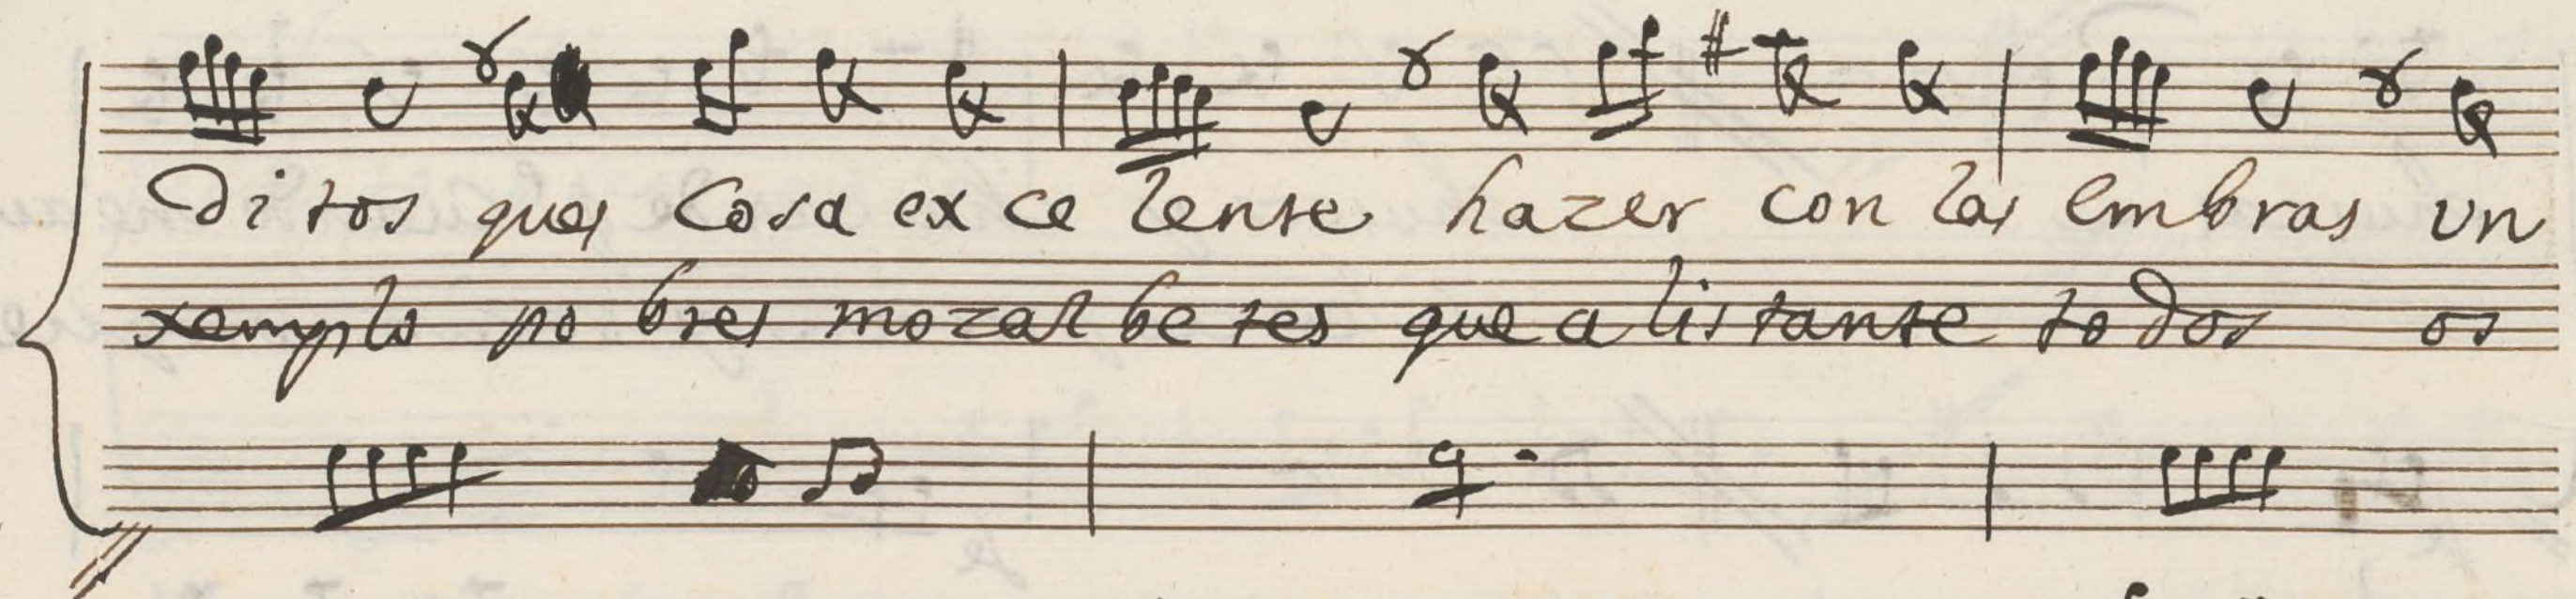 Di tos ques Cosa ex ce lente hazer con las embras un
xemplo po bres mozal be tes que a lis tante to dos os